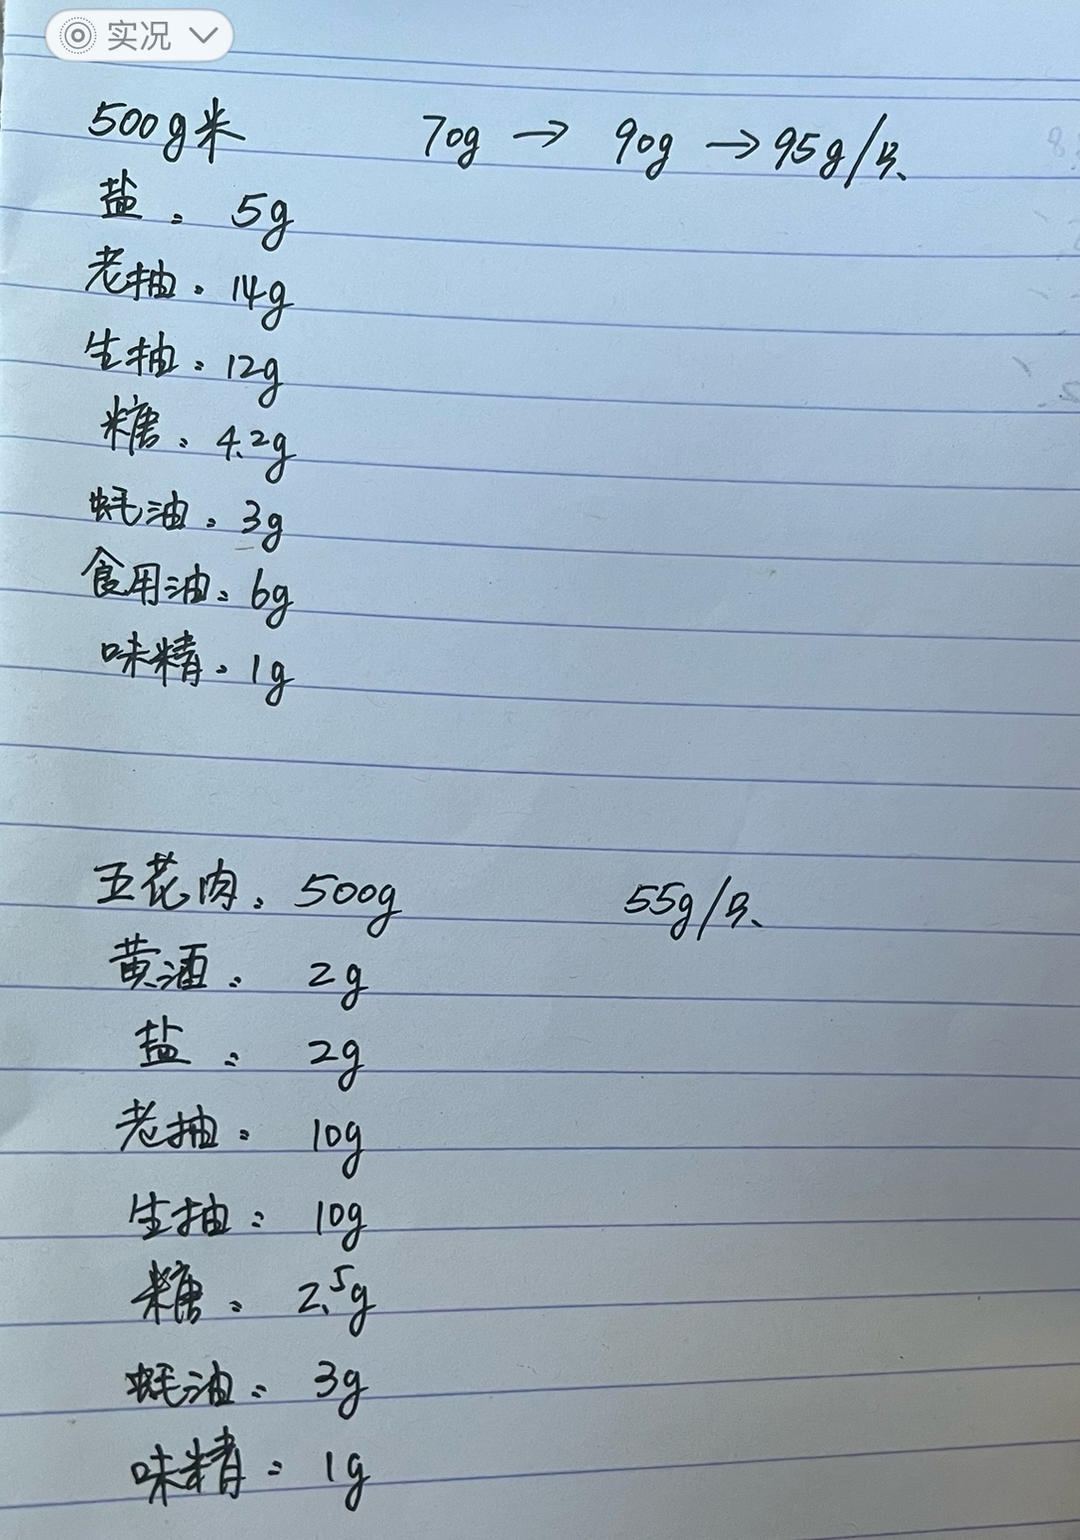 实况
500g米 70g → 90g → 95g/只
盐：5g
老抽：14g
生抽：12g
糖：4.2g
蚝油：3g
食用油：6g
味精：1g
五花肉：500g 55g/只
黄酒：2g
盐：2g
老抽：10g
生抽：10g
糖：2.5g
蚝油：3g
味精：1g